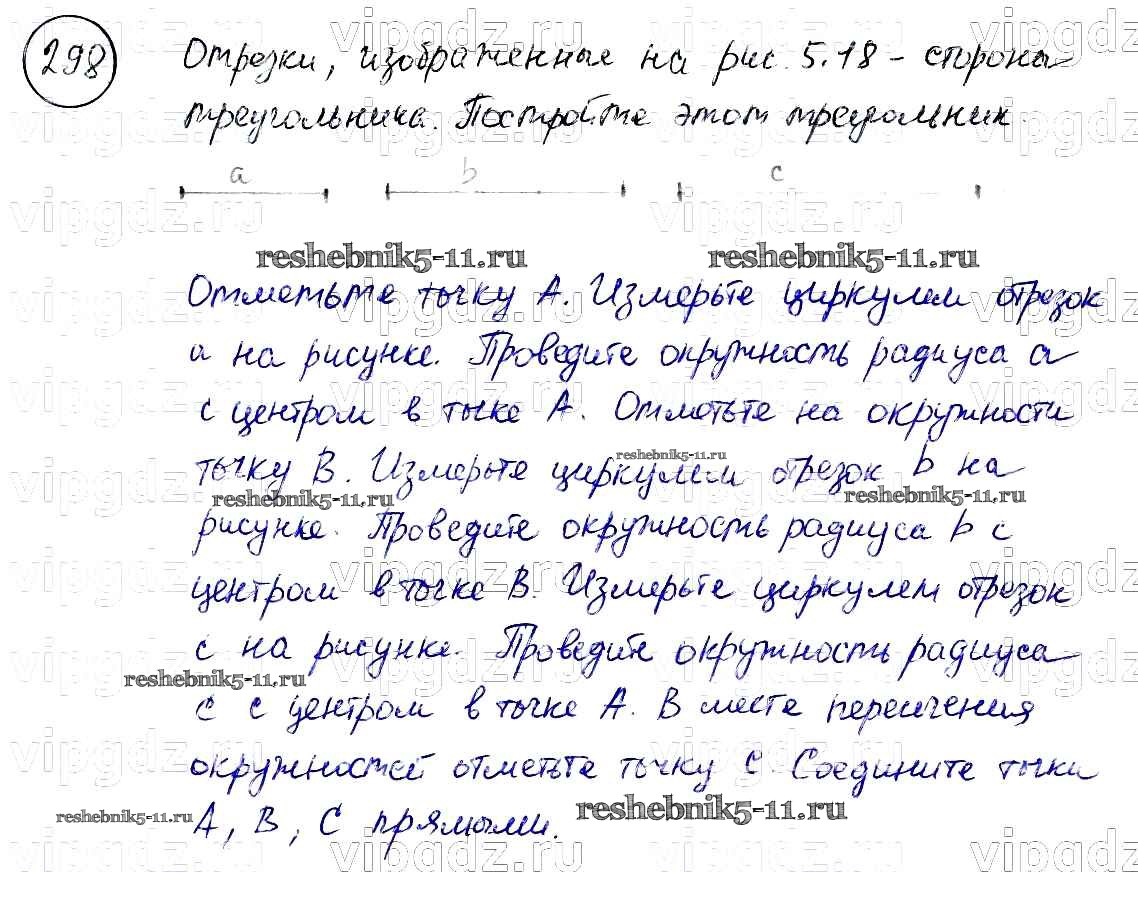 298 Отрезки, изображенные на рис. 5.18 - стороны
треугольника. Постройте этот треугольник
a b c
reshebnik5-11.ru reshebnik5-11.ru
Отметьте точку A. Измерьте циркулем отрезок
a на рисунке. Проведите окружность радиуса a
с центром в точке A. Отметьте на окружности
точку B. Измерьте циркулем отрезок b на
reshebnik5-11.ru reshebnik5-11.ru reshebnik5-11.ru
рисунке. Проведите окружность радиуса b с
центром в точке B. Измерьте циркулем отрезок
c на рисунке. Проведите окружность радиуса
reshebnik5-11.ru
c с центром в точке A. В месте пересечения
окружностей отметьте точку C. Соедините точки
reshebnik5-11.ru reshebnik5-11.ru
A, B, C прямыми.
vipgdz.ru